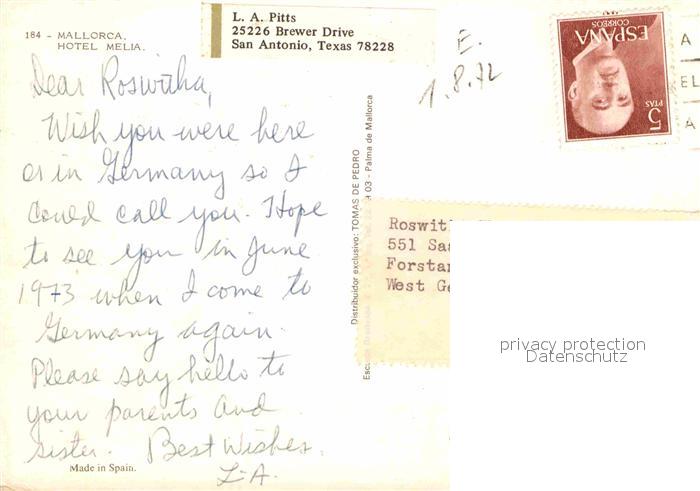 184 - MALLORCA.
HOTEL MELIA.
L. A. Pitts
25226 Brewer Drive
San Antonio, Texas 78228
E.
1.8.72
ESPAÑA
CORREOS
5
PTAS
A
EL
A
Dear Roswitha,
Wish you were here
or in Germany so I
could call you. Hope
to see you in June
1973 when I come to
Germany again.
Please say hello to
your parents and
sister. Best Wishes.
L-A.
Made in Spain.
Distribuidor exclusivo: TOMAS DE PEDRO
03 - Palma de Mallorca
Roswit
551 Saa
Forsta
West Ge
privacy protection
Datenschutz